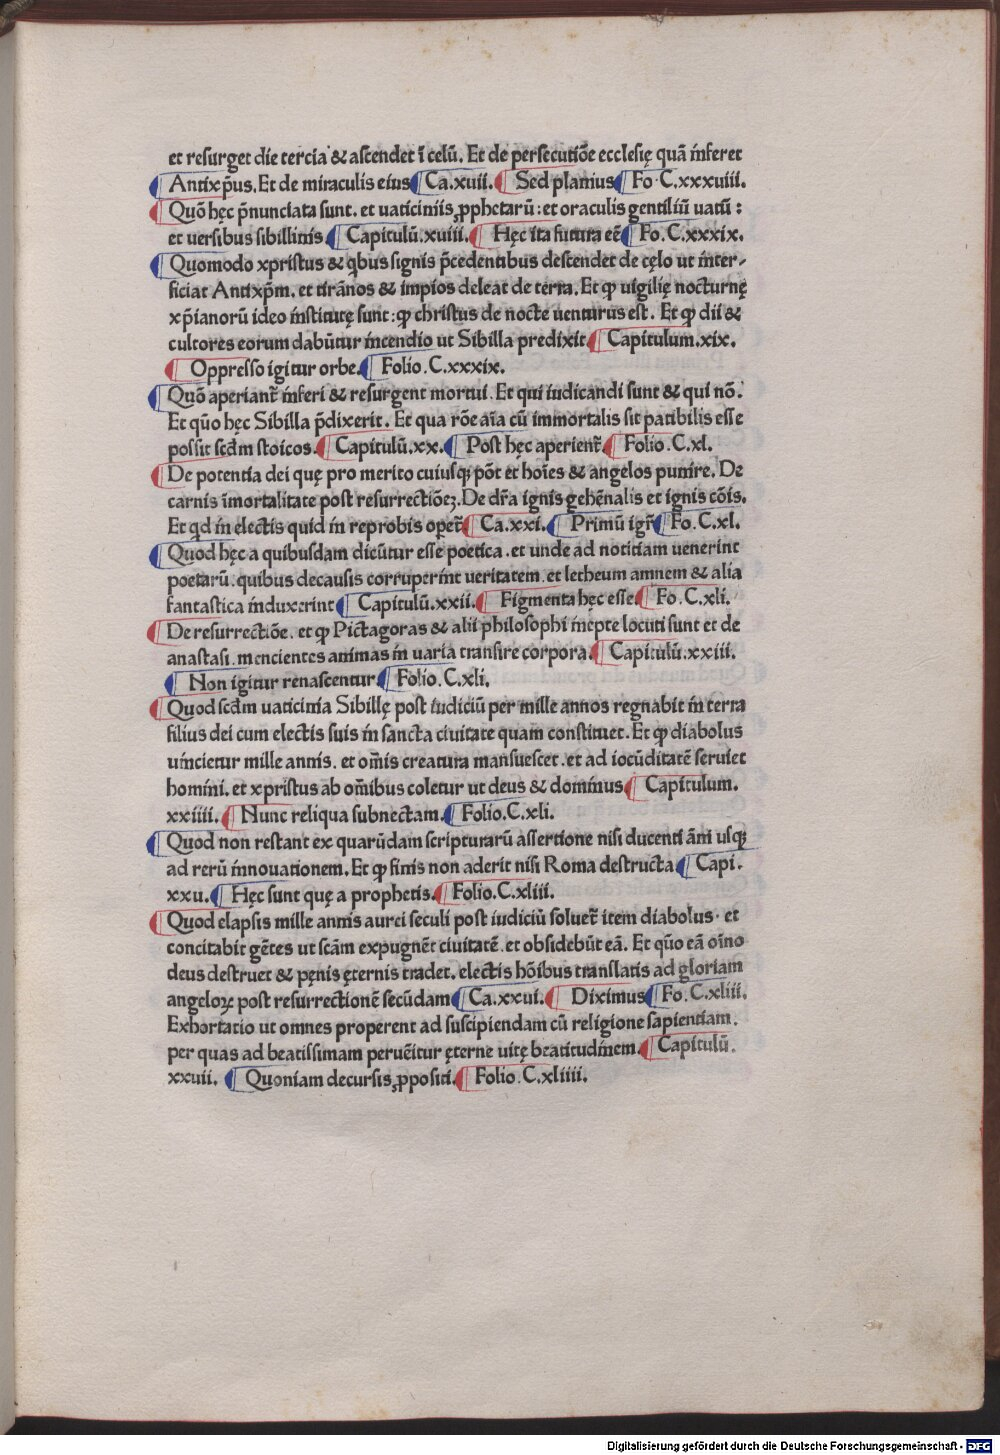 et resurget die tercia & ascendet ī celū. Et de persecutiōe ecclesię quā inferet
Antixp̄us. Et de miraculis eius Ca.xuii. Sed planius Fo C.xxxuiii.
Quō hęc p̄nunciata sunt. et uaticiniis ꝓphetarū: et oraculis gentiliū uatū:
et uersibus sibillinis Capitulū.xuiii. Hęc ita futura eē Fo.C.xxxix.
Quomodo xpristus & qbus signis p̄cedentibus descendet de cęlo ut inter-
ficiat Antixp̄m. et tirānos & impios deleat de terra. Et ꝙ uigilię nocturnę
xp̄ianorū ideo institutę sunt: ꝙ christus de nocte uenturus est. Et ꝙ dii &
cultores eorum dabūtur incendio ut Sibilla predixit Capitulum.xix.
Oppresso igitur orbe. Folio.C.xxxix.
Quō aperiant̄ inferi & resurgent mortui. Et qui iudicandi sunt & qui nō.
Et qūo hęc Sibilla p̄dixerit. Et qua rōe aīa cū immortalis sit patibilis esse
possit scd̄m stoicos. Capitulū.xx. Post hęc aperient̄ Folio.C.xl.
De potentia dei quę pro merito cuiusqꝫ pōt et hoīes & angelos punire. De
carnis īmortalitate post resurrectiōeꝫ. De dr̄a ignis gehēnalis et ignis cōis.
Et qd in electis quid in reprobis oper̄t Ca.xxi. Primū igr̄ Fo.C.xl.
Quod hęc a quibusdam dicūtur esse poetica. et unde ad notitiam uenerint
poetarū. quibus decausis corruperint ueritatem. et letheum amnem & alia
fantastica induxerint Capitulū.xxii. Figmenta hęc esse Fo.C.xli.
De resurrectiōe. et ꝙ Pictagoras & alii philosophi inepte locuti sunt et de
anastasi. mencientes animas in uaria transire corpora. Capitulū.xxiii.
Non igitur renascentur Folio.C.xli.
Quod scd̄m uaticinia Sibillę post iudiciū per mille annos regnabit in terra
filius dei cum electis suis in sancta ciuitate quam constituet. Et ꝙ diabolus
uincietur mille annis. et om̄is creatura mansuescet. et ad iocūditatē seruiet
homini. et xpristus ab om̄ibus coletur ut deus & dominus Capitulum.
xxiiii. Nunc reliqua subnectam. Folio.C.xli.
Quod non restant ex quarūdam scripturarū assertione nisi ducenti āni usqꝫ
ad rerū innouationem. Et ꝙ finis non aderit nisi Roma destructa Capi.
xxu. Hęc sunt quę a prophetis. Folio.C.xliii.
Quod elapsis mille annis aurei seculi post iudiciū soluet̄ item diabolus. et
concitabit gētes ut scām expugnēt ciuitatē. et obsidebūt eā. Et qūo eā oīno
deus destruet & pęnis ęternis tradet. electis hōibus translatis ad gloriam
angeloꝝ post resurrectionē secūdam Ca.xxui. Diximus Fo.C.xliii.
Exhortatio ut omnes properent ad suscipiendam cū religione sapientiam.
per quas ad beatissimam peruēitur ęterne uitę beatitudinem Capitulū.
xxuii. Quoniam decursis ꝓpositi. Folio.C.xliiii.
Digitalisierung gefördert durch die Deutsche Forschungsgemeinschaft - DFG